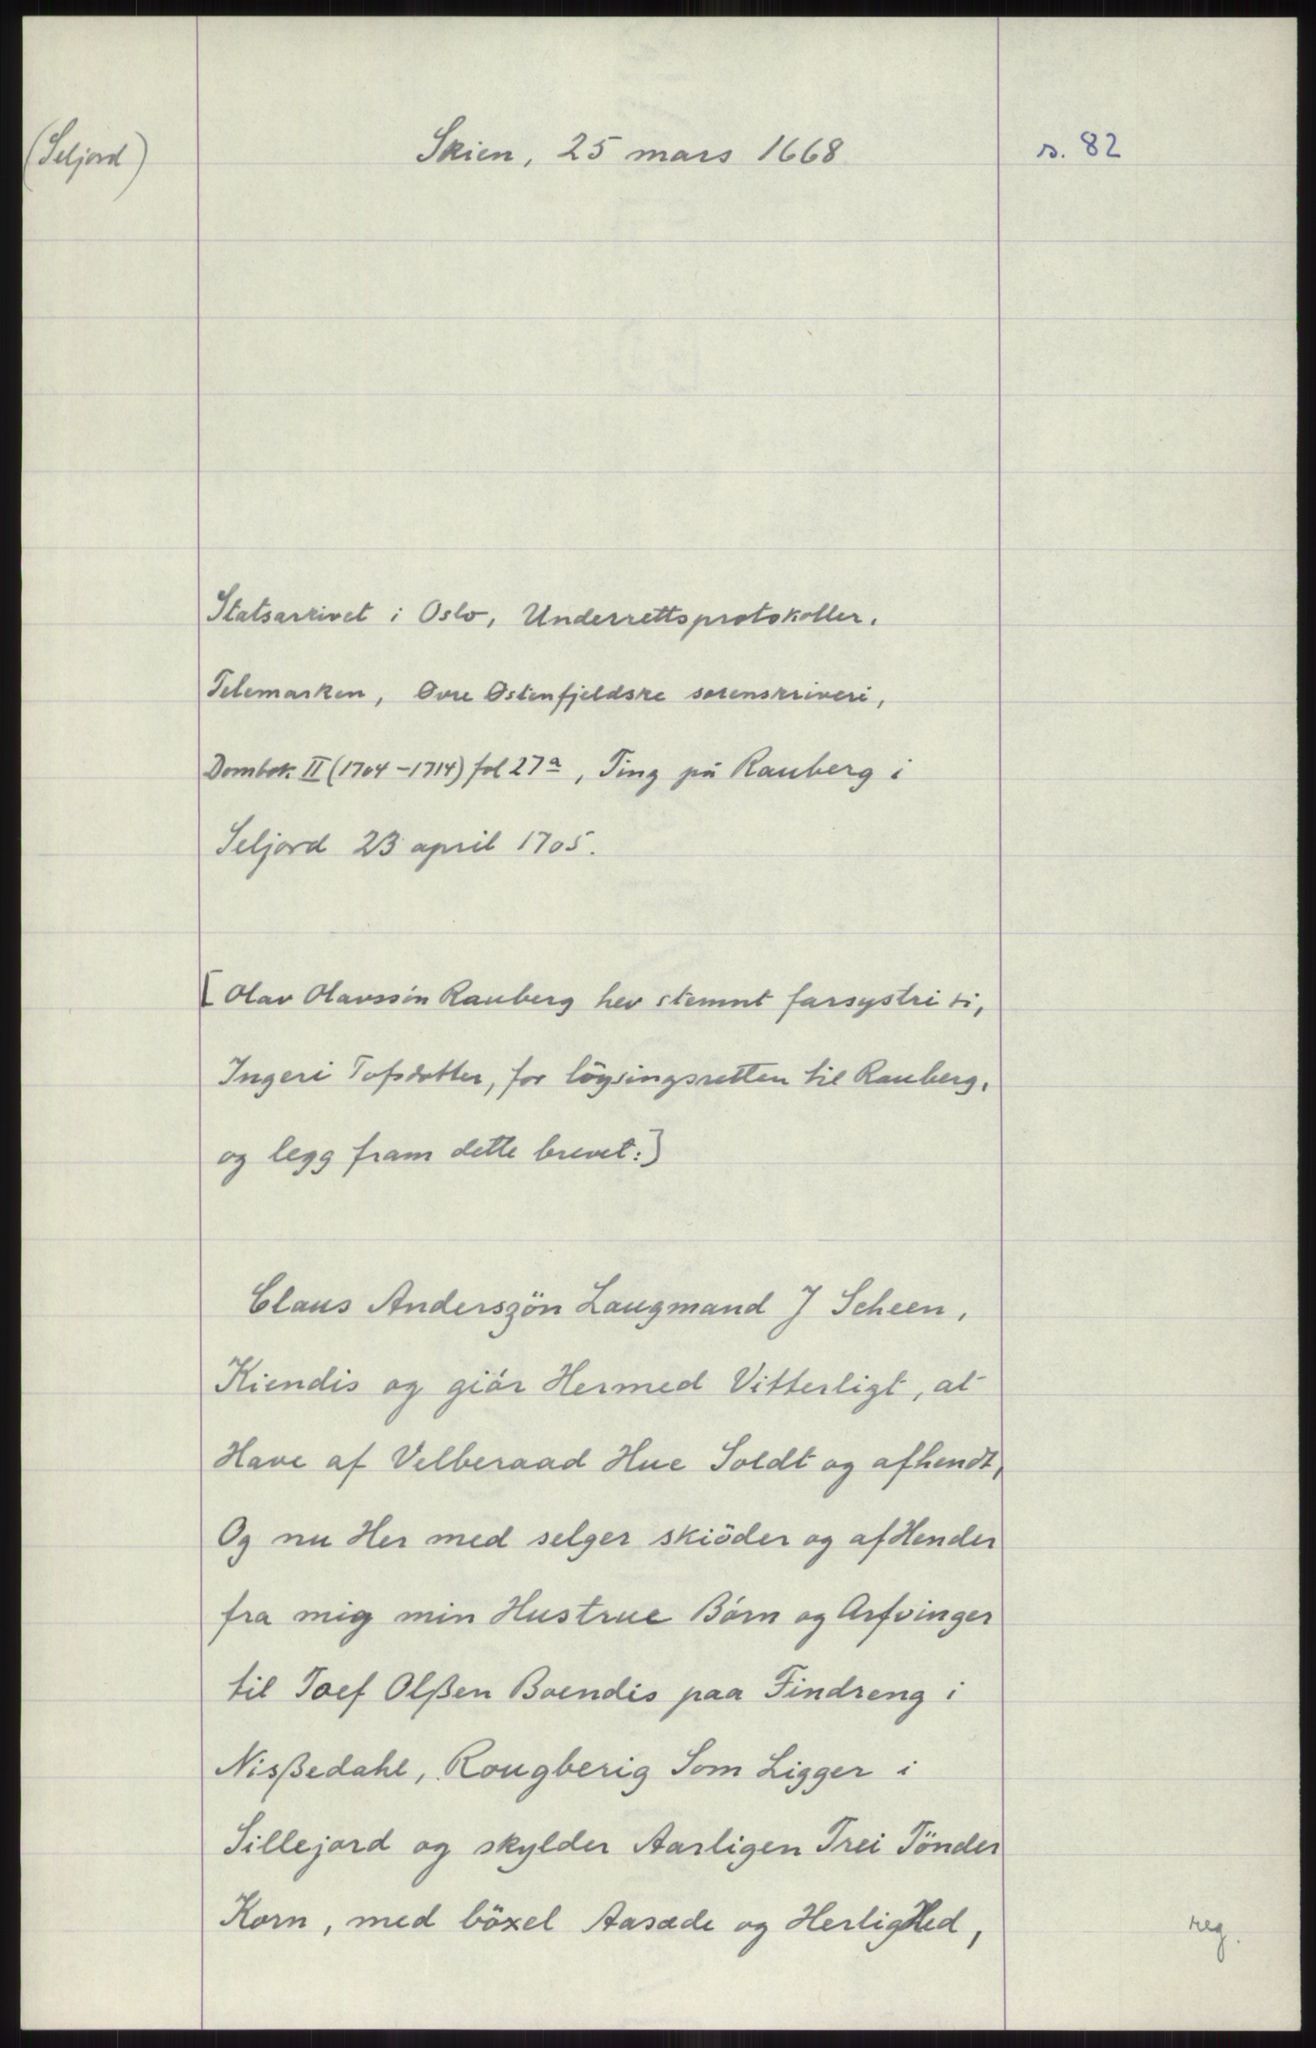 (Seljord)
Skien, 25 mars 1668
s. 82
Statsarkivet i Oslo, Underrettsprotokoller.
Telemarken, Øvre Østenfjeldske sorenskriveri,
Dombok II (1704-1714) fol 27a, Ting på Rauberg i
Seljord 23 april 1705.
[Olav Olavssön Rauberg hev stemnt farsystri si,
Ingeri Tofsdotter, for löysingsretten til Rauberg,
og legg fram dette brevet:]
Claus Anderszön Laugmand J Scheen,
Kiendis og giör Hermed Vitterligt, at
Have af Velberaad Hue Soldt og afhendt,
Og nu Her med selger skiöder og afHender
fra mig min Hustrue Börn og Arfvinger
til Toef Olßen Boendis paa Findreng i
Nisßedahl, Rougberig Som Ligger i
Sillejord og skylder Aarligen Trei Tönder
Korn, med böxel Aasæde og HerligHed,
reg.